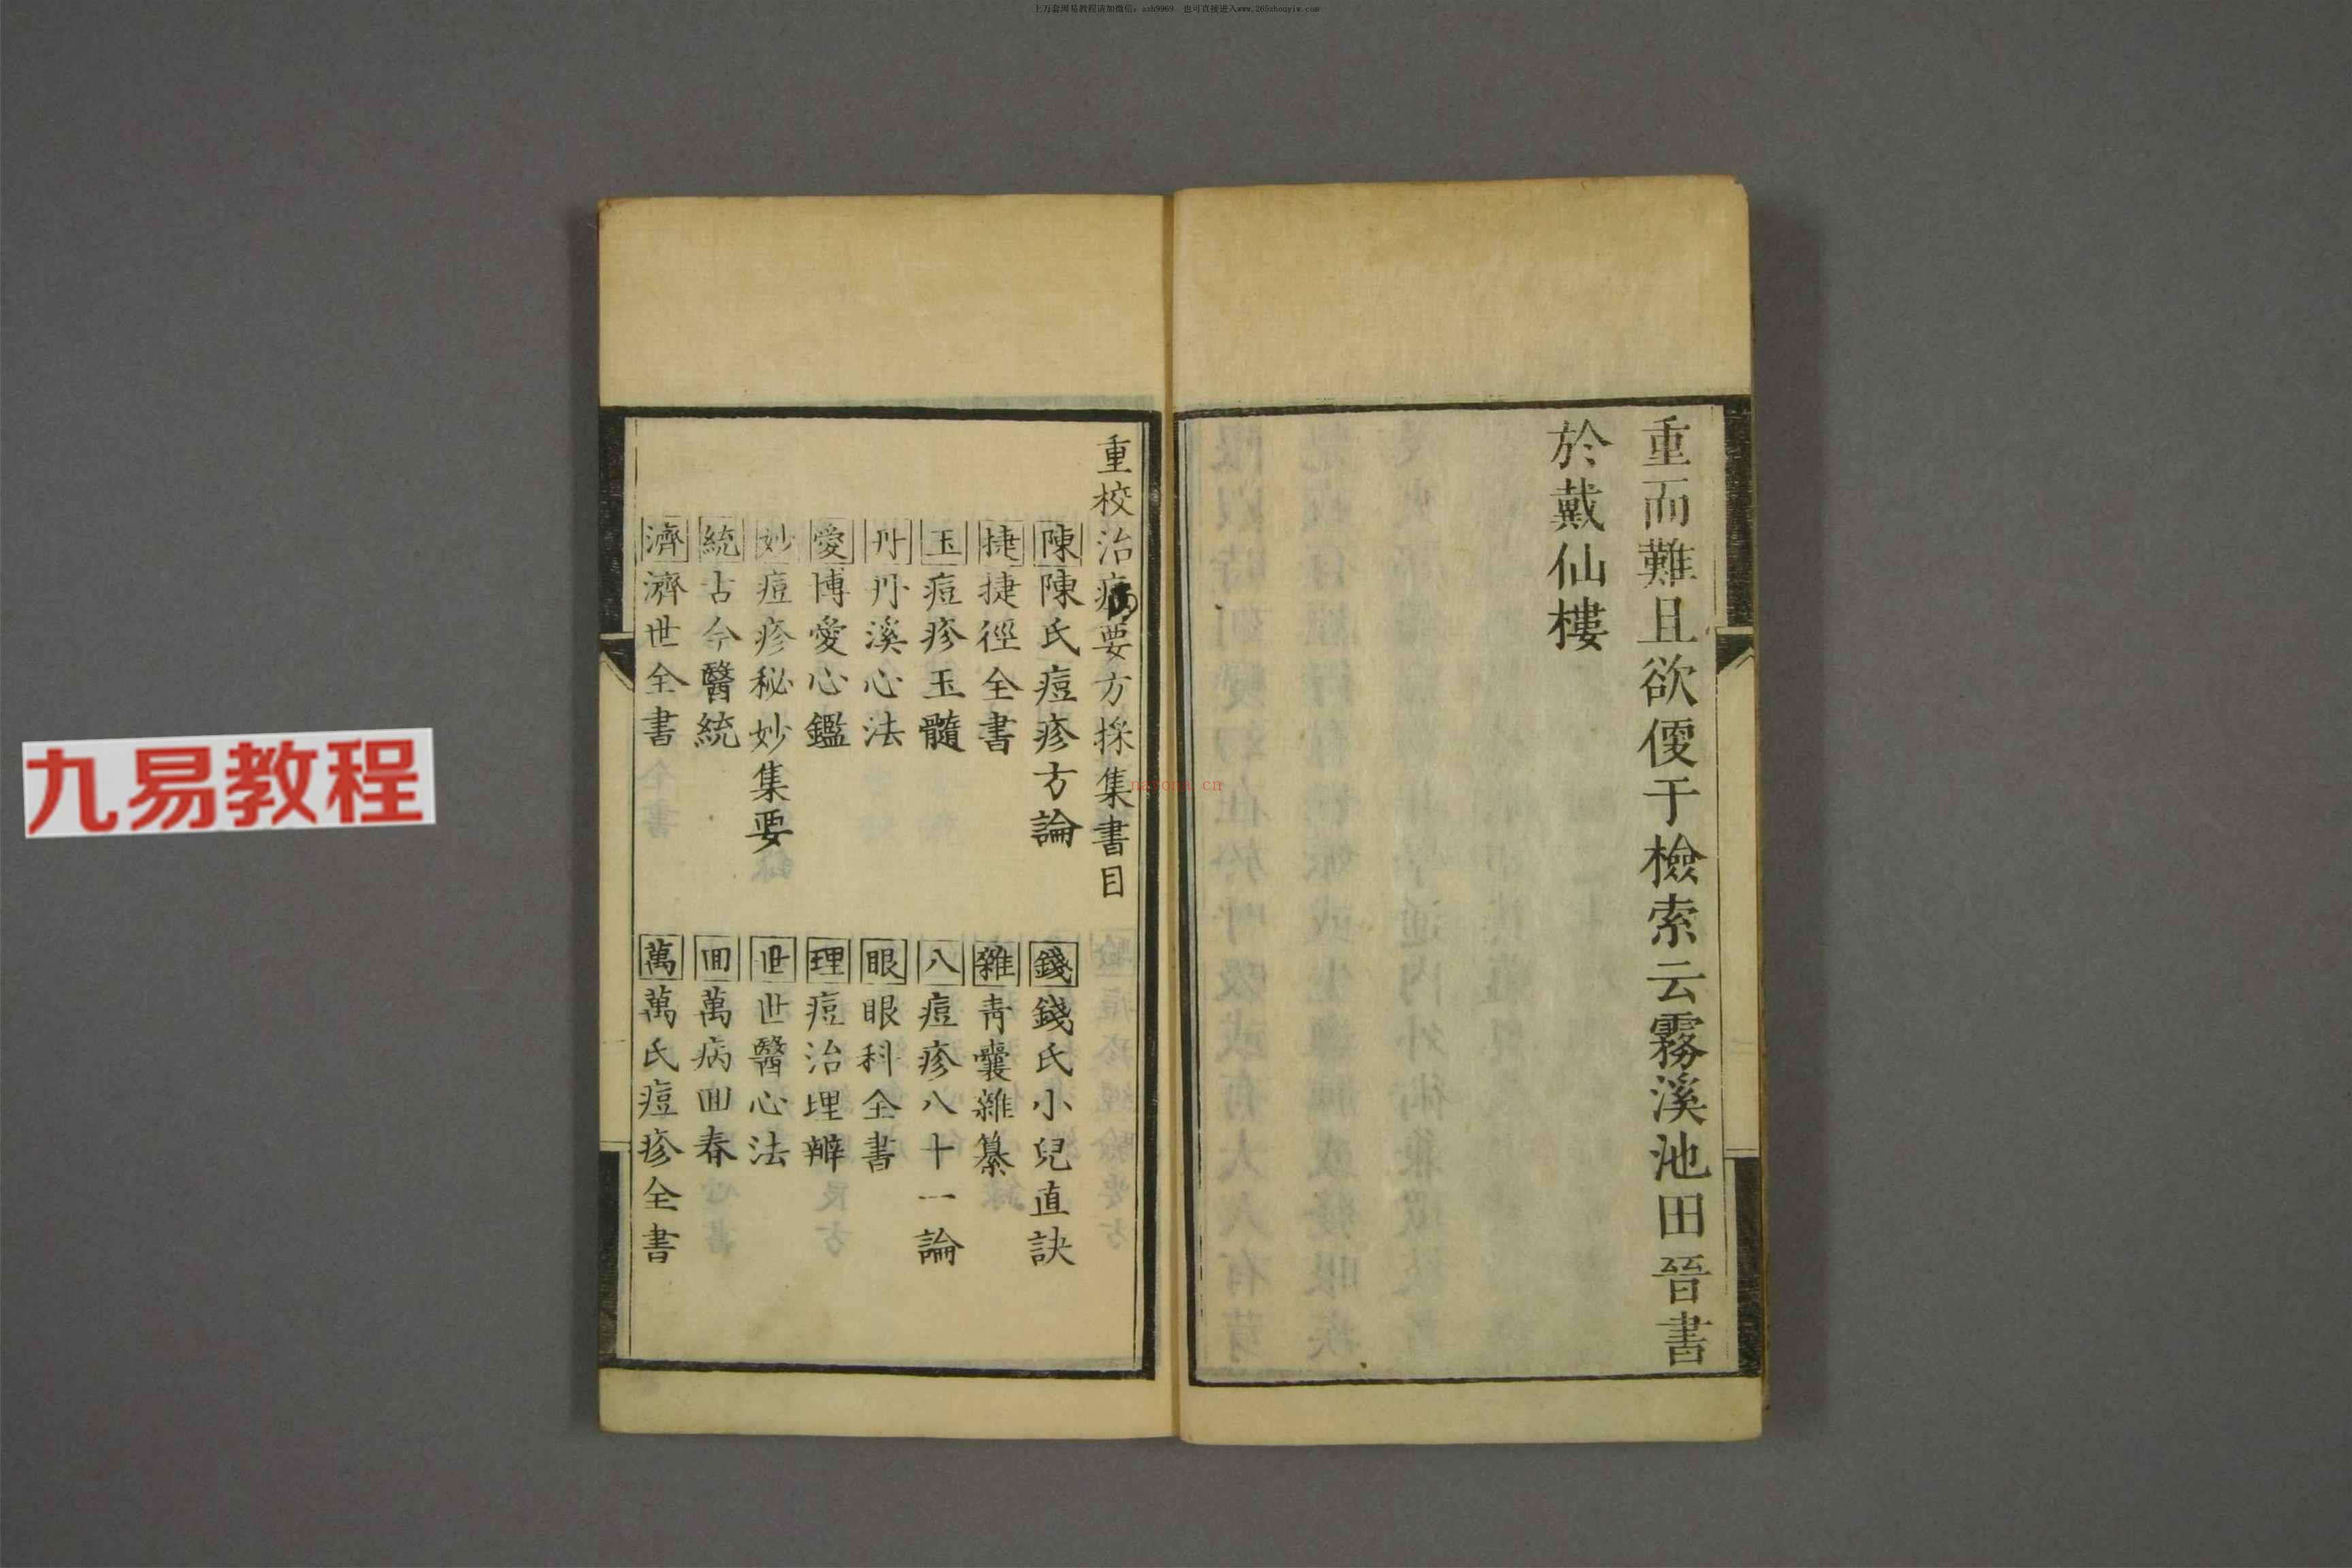 上万套周易教程请加微信：azh9969 也可直接进入www.265zhouyiw.com
重而難且欲便于檢索云霧溪池田晉書
於戴仙樓
重校治痘要方採集書目
陳陳氏痘疹方論
錢錢氏小兒直訣
捷捷徑全書
雜青囊雜纂
玉痘疹玉髓
八痘疹八十一論
丹丹溪心法
眼眼科全書
愛博愛心鑑
理痘治理辨
妙痘疹秘妙集要
世世醫心法
統古今醫統
回萬病回春
濟濟世全書
萬萬氏痘疹全書
九易教程
nayona.cn